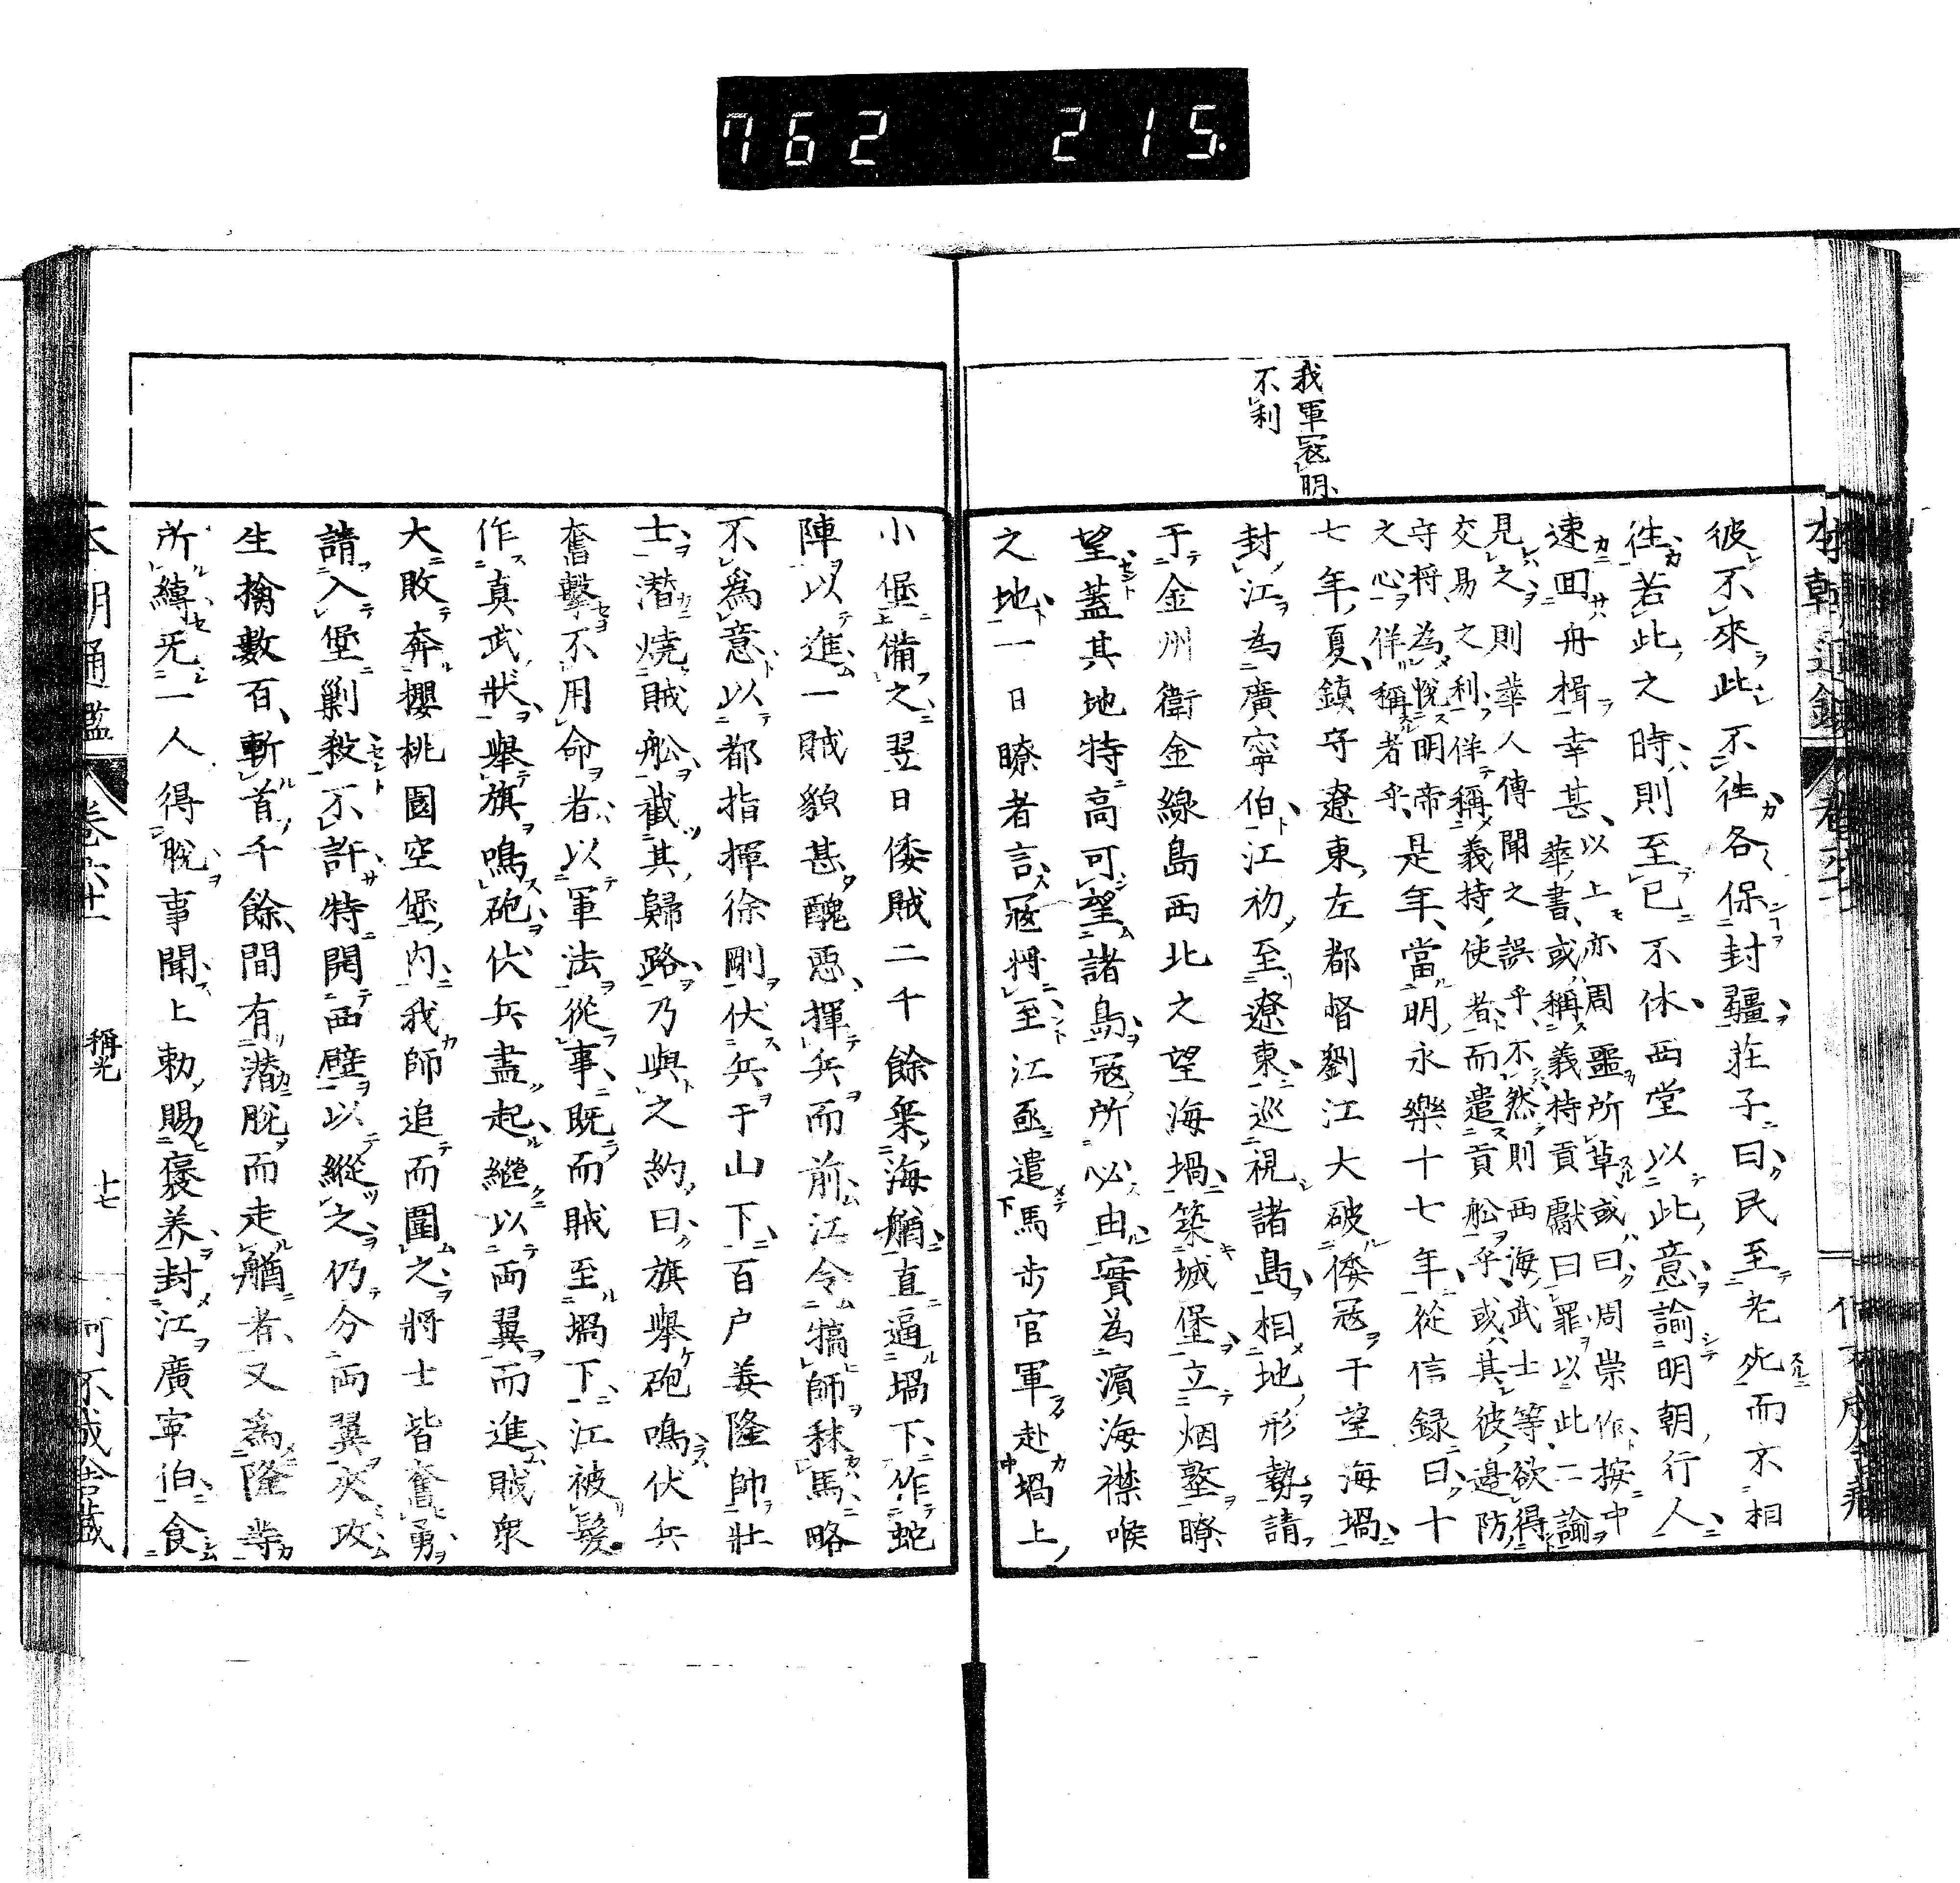 762 215.
我軍寇明
不利
彼不來此不往各保封疆莊子曰民至老死而不相
往若此之時則至已不休西堂以此意諭明朝行人
速回舟楫幸甚
以上亦周噩所草或曰周崇作按中
華書或稱義持貢獻曰罪以此二諭
見之則華人傳聞之誤乎不然則西海武士等欲得
交易之利佯稱義持使者而遣貢舩乎或其彼邊防
守将為悦明帝
之心佯稱者乎
是年當明永樂十七年從信録曰十
七年夏鎮守遼東左都督劉江大破倭寇于望海堝
封江為廣寧伯江初至遼東巡視諸島相地形勢請
于金州衛金線島西北之望海堝築城堡立烟墪瞭
望蓋其地特高可望諸島寇所必由實為濱海襟喉
之地一日瞭者言寇将至江亟遣馬步官軍赴堝上
小堡備之翌日倭賊二千餘乗海艏直逼堝下作蛇
陣以進一賊貌甚醜惡揮兵而前江令犒師秣馬略
不為意以都指揮徐剛伏兵于山下百户姜隆帥壯
士潜焼賊舩截其歸路乃與之約曰旗舉砲鳴伏兵
奮擊不用命者以軍法從事既而賊至堝下江被髮
作真武狀舉旗鳴砲伏兵盡起繼以両翼而進賊衆
大敗奔櫻桃園空堡内我師追而圍之將士皆奮勇
請入堡剿殺不許特開西壁以縱之仍分両翼夾攻
生擒數百斬首千餘間有潜脱而走艏者又為隆等
所縛无一人得脱事聞上勅賜褒养封江廣寧伯食
稱光 十七